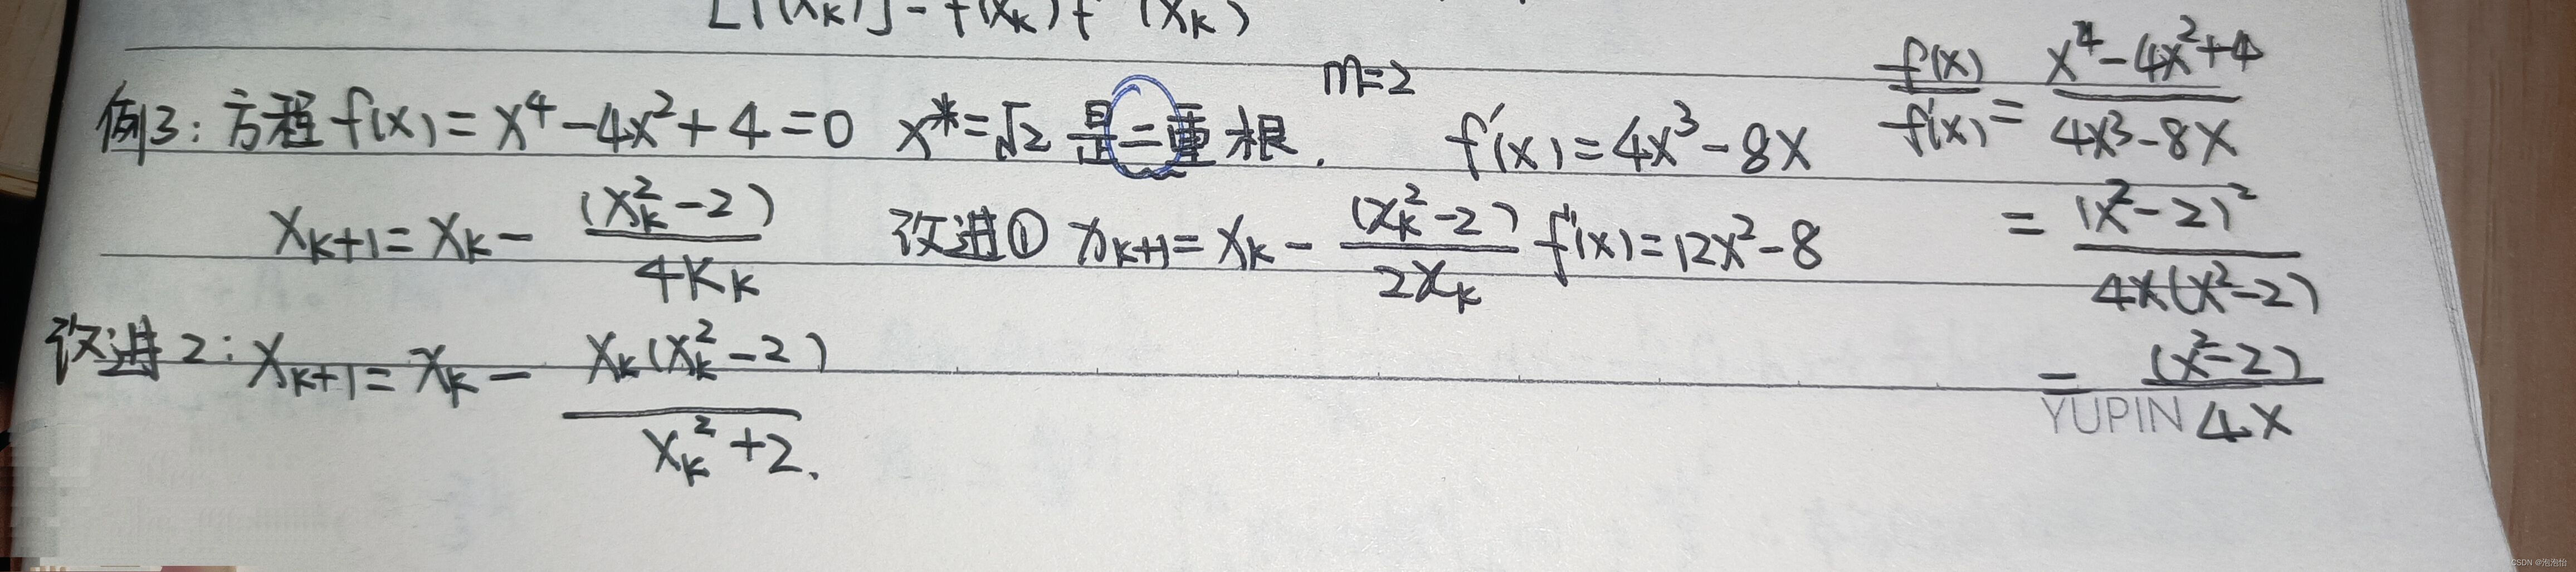 [f'(xₖ)]² - f(xₖ)f''(xₖ)
例3: 方程 f(x) = x⁴ - 4x² + 4 = 0 x* = √2 是二重根. m=2 f'(x) = 4x³ - 8x
f(x)/f'(x) = (x⁴ - 4x² + 4)/(4x³ - 8x)
xₖ₊₁ = xₖ - (xₖ² - 2)/(4Kₖ) 改进① xₖ₊₁ = xₖ - (xₖ² - 2)/(2xₖ) f''(x) = 12x² - 8
= (x² - 2)²/(4x(x² - 2))
改进2: xₖ₊₁ = xₖ - xₖ(xₖ² - 2)/(xₖ² + 2).
= (x² - 2)/(4x)
YUPIN
CSDN @泡泡怡